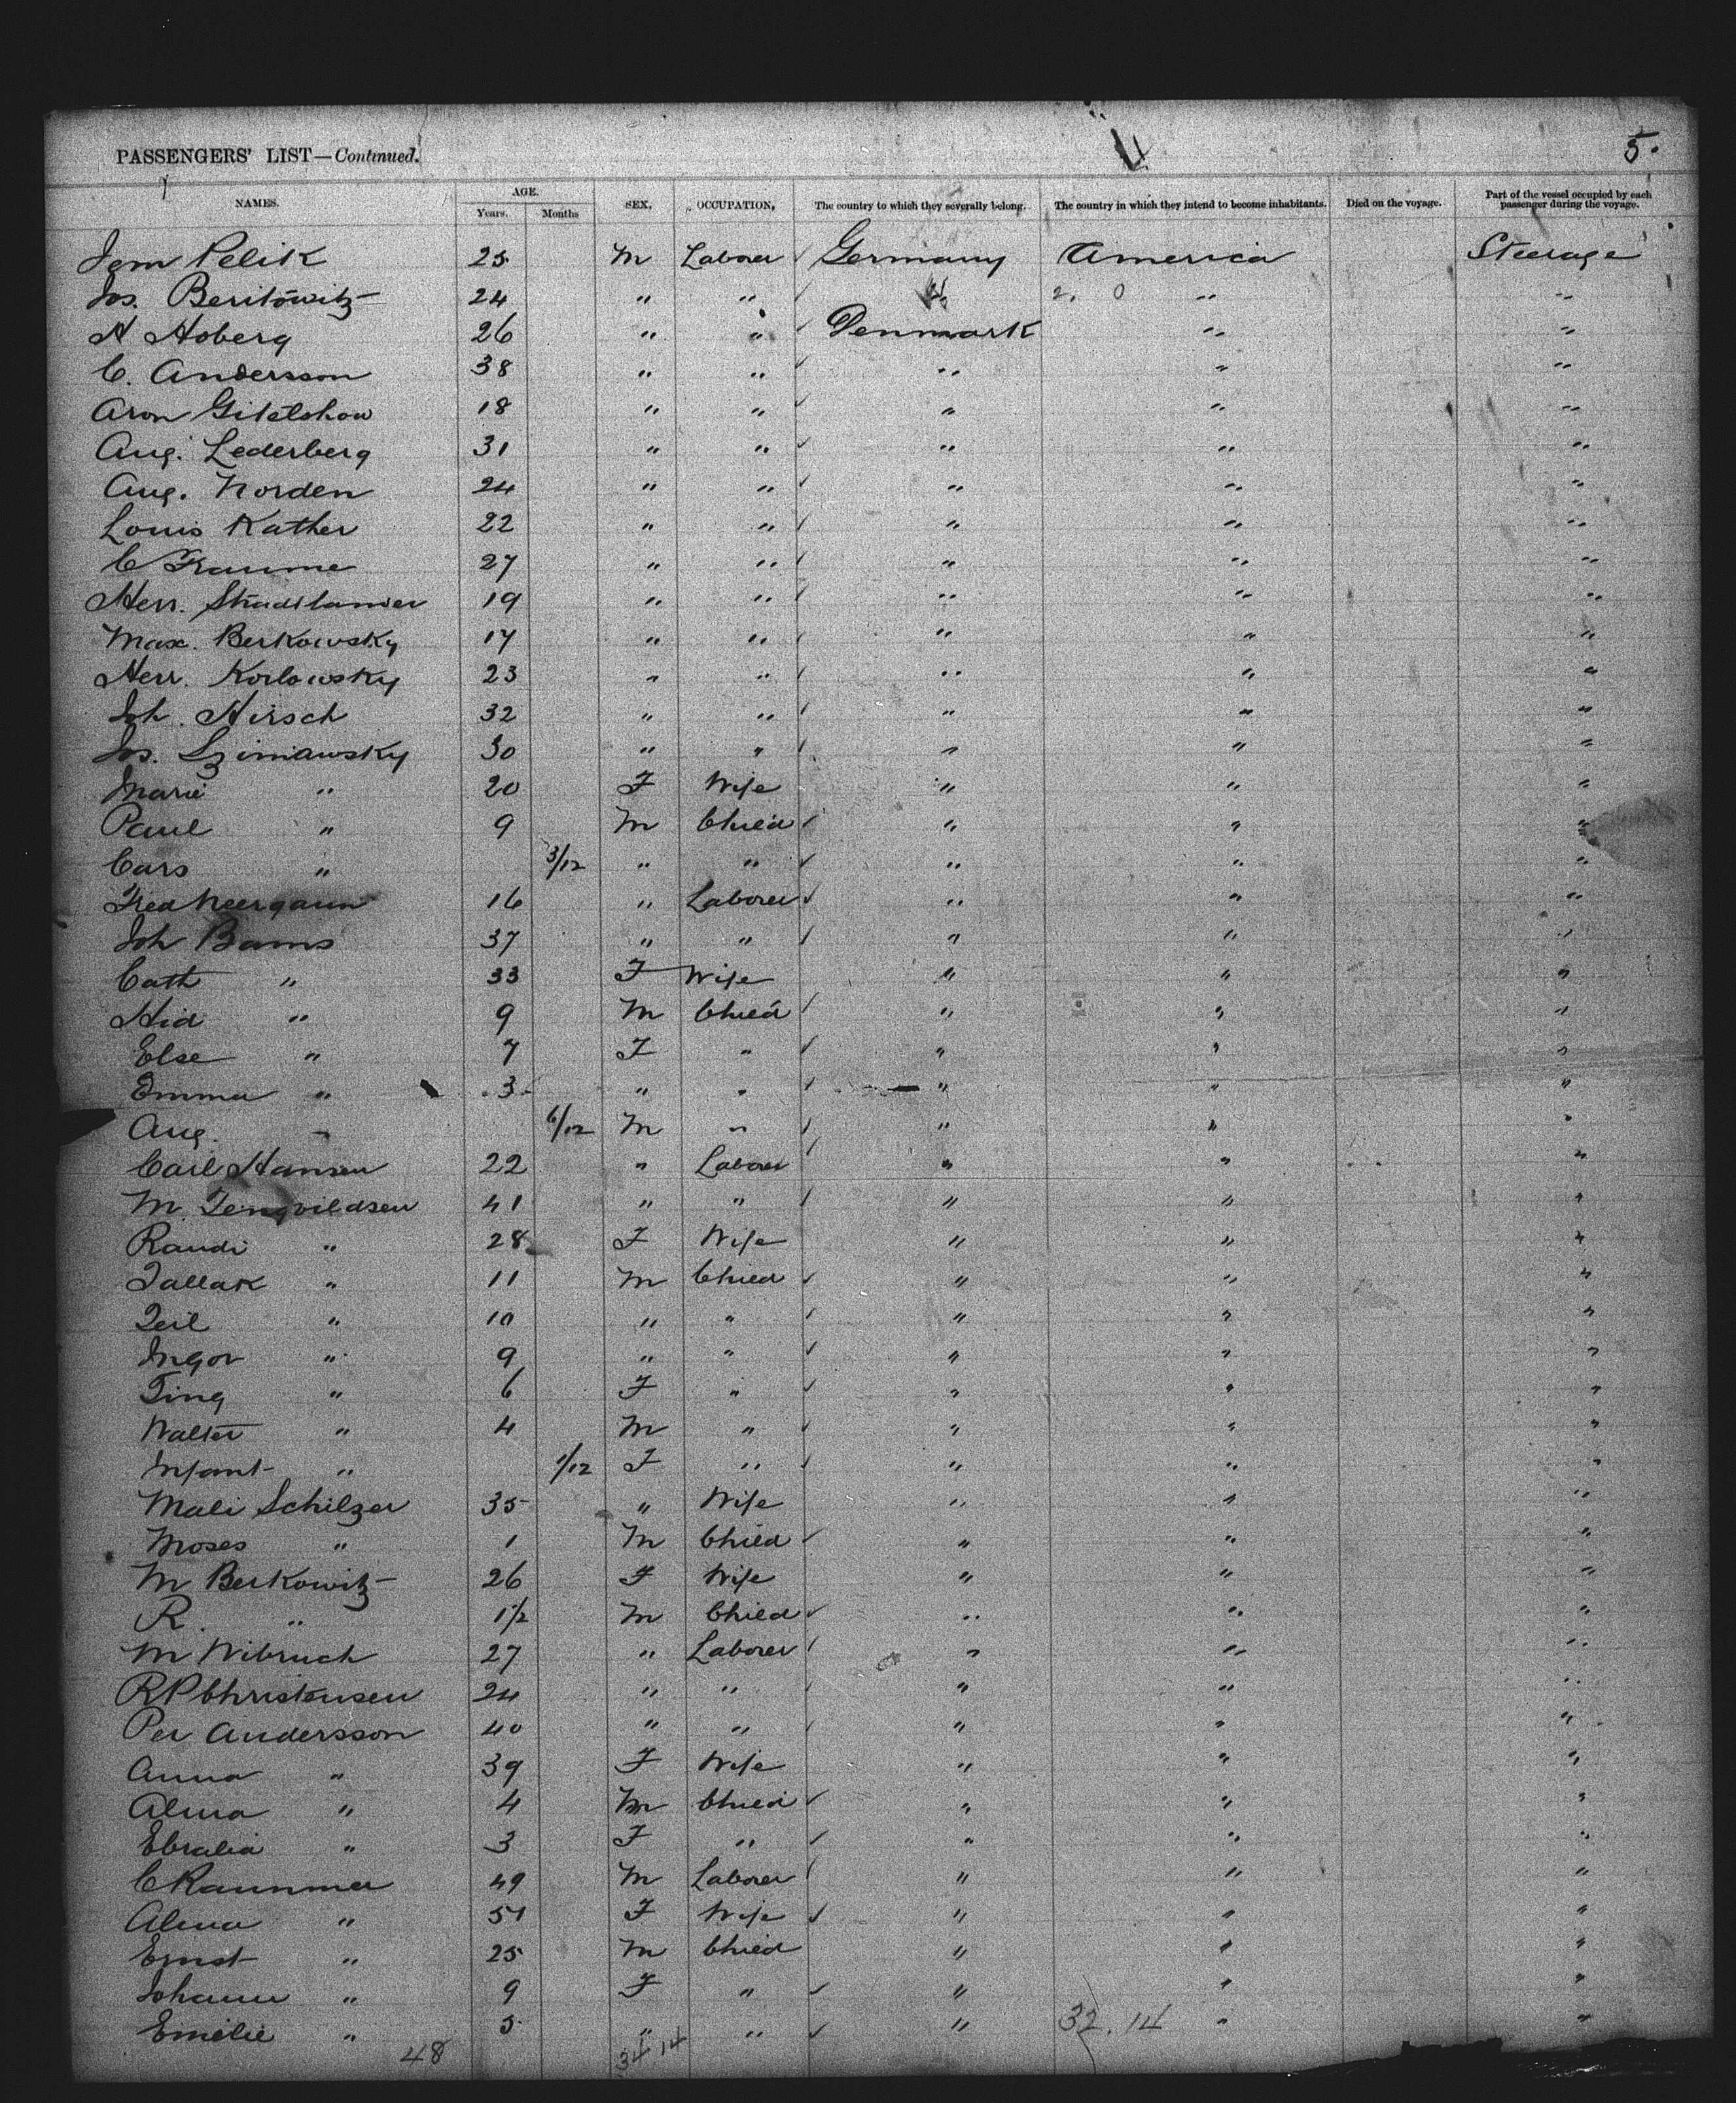 PASSENGERS' LIST—Continued. 5.
NAMES. AGE. Years. Months SEX. OCCUPATION, The country to which they severally belong. The country in which they intend to become inhabitants. Died on the voyage. Part of the vessel occupied by each passenger during the voyage.
Pelik 25 M Laborer Germany America Steerage
Jos. Beritowitz 24 " " " 2. 0 " "
H Hoberg 26 " " Denmark " "
C. Andersson 38 " " " " "
Aron 18 " " " " "
Aug. Lederberg 31 " " " " "
Aug. Norden 24 " " " " "
Louis Kather 22 " " " " "
C 27 " " " " "
Herr. 19 " " " " "
Max. Berkowsky 17 " " " " "
Herr. Korlowsky 23 " " " " "
Joh. Hirsch 32 " " " " "
Jos. Szimiawsky 30 " " " " "
Marie " 20 F Wife " " "
Paul " 9 M Child " " "
Cars " 3/12 " " " " "
Fred Neergaun 16 " Laborer " " "
Joh Bams 37 " " " " "
Cath " 33 F Wife " " "
Hid " 9 M Child " " "
Else " 7 F " " " "
Emma " 3 " " " " "
Aug. " 6/12 M " " " "
Carl Hansen 22 " Laborer " " "
M. 41 " " " " "
Randi " 28 F Wife " " "
Tallak " 11 M Child " " "
Teil " 10 " " " " "
Ingor " 9 " " " " "
Ting " 6 F " " " "
Walter " 4 M " " " "
Infant " 1/12 F " " " "
Mali Schilzer 35 " Wife " " "
Moses " 1 M Child " " "
M Berkowitz 26 F Wife " " "
R. " 1 1/2 M Child " " "
M Wibruch 27 " Laborer " " "
R P Christensen 24 " " " " "
Per Andersson 40 " " " " "
Anna " 39 F Wife " " "
Alma " 4 M Child " " "
Ebralia " 3 F " " " "
C Raummer 49 M Laborer " " "
Alma " 51 F Wife " " "
Ernst " 25 M Child " " "
Johann " 9 F " " " "
Emelie " 5 " " " 32. 14 " "
48 34 14